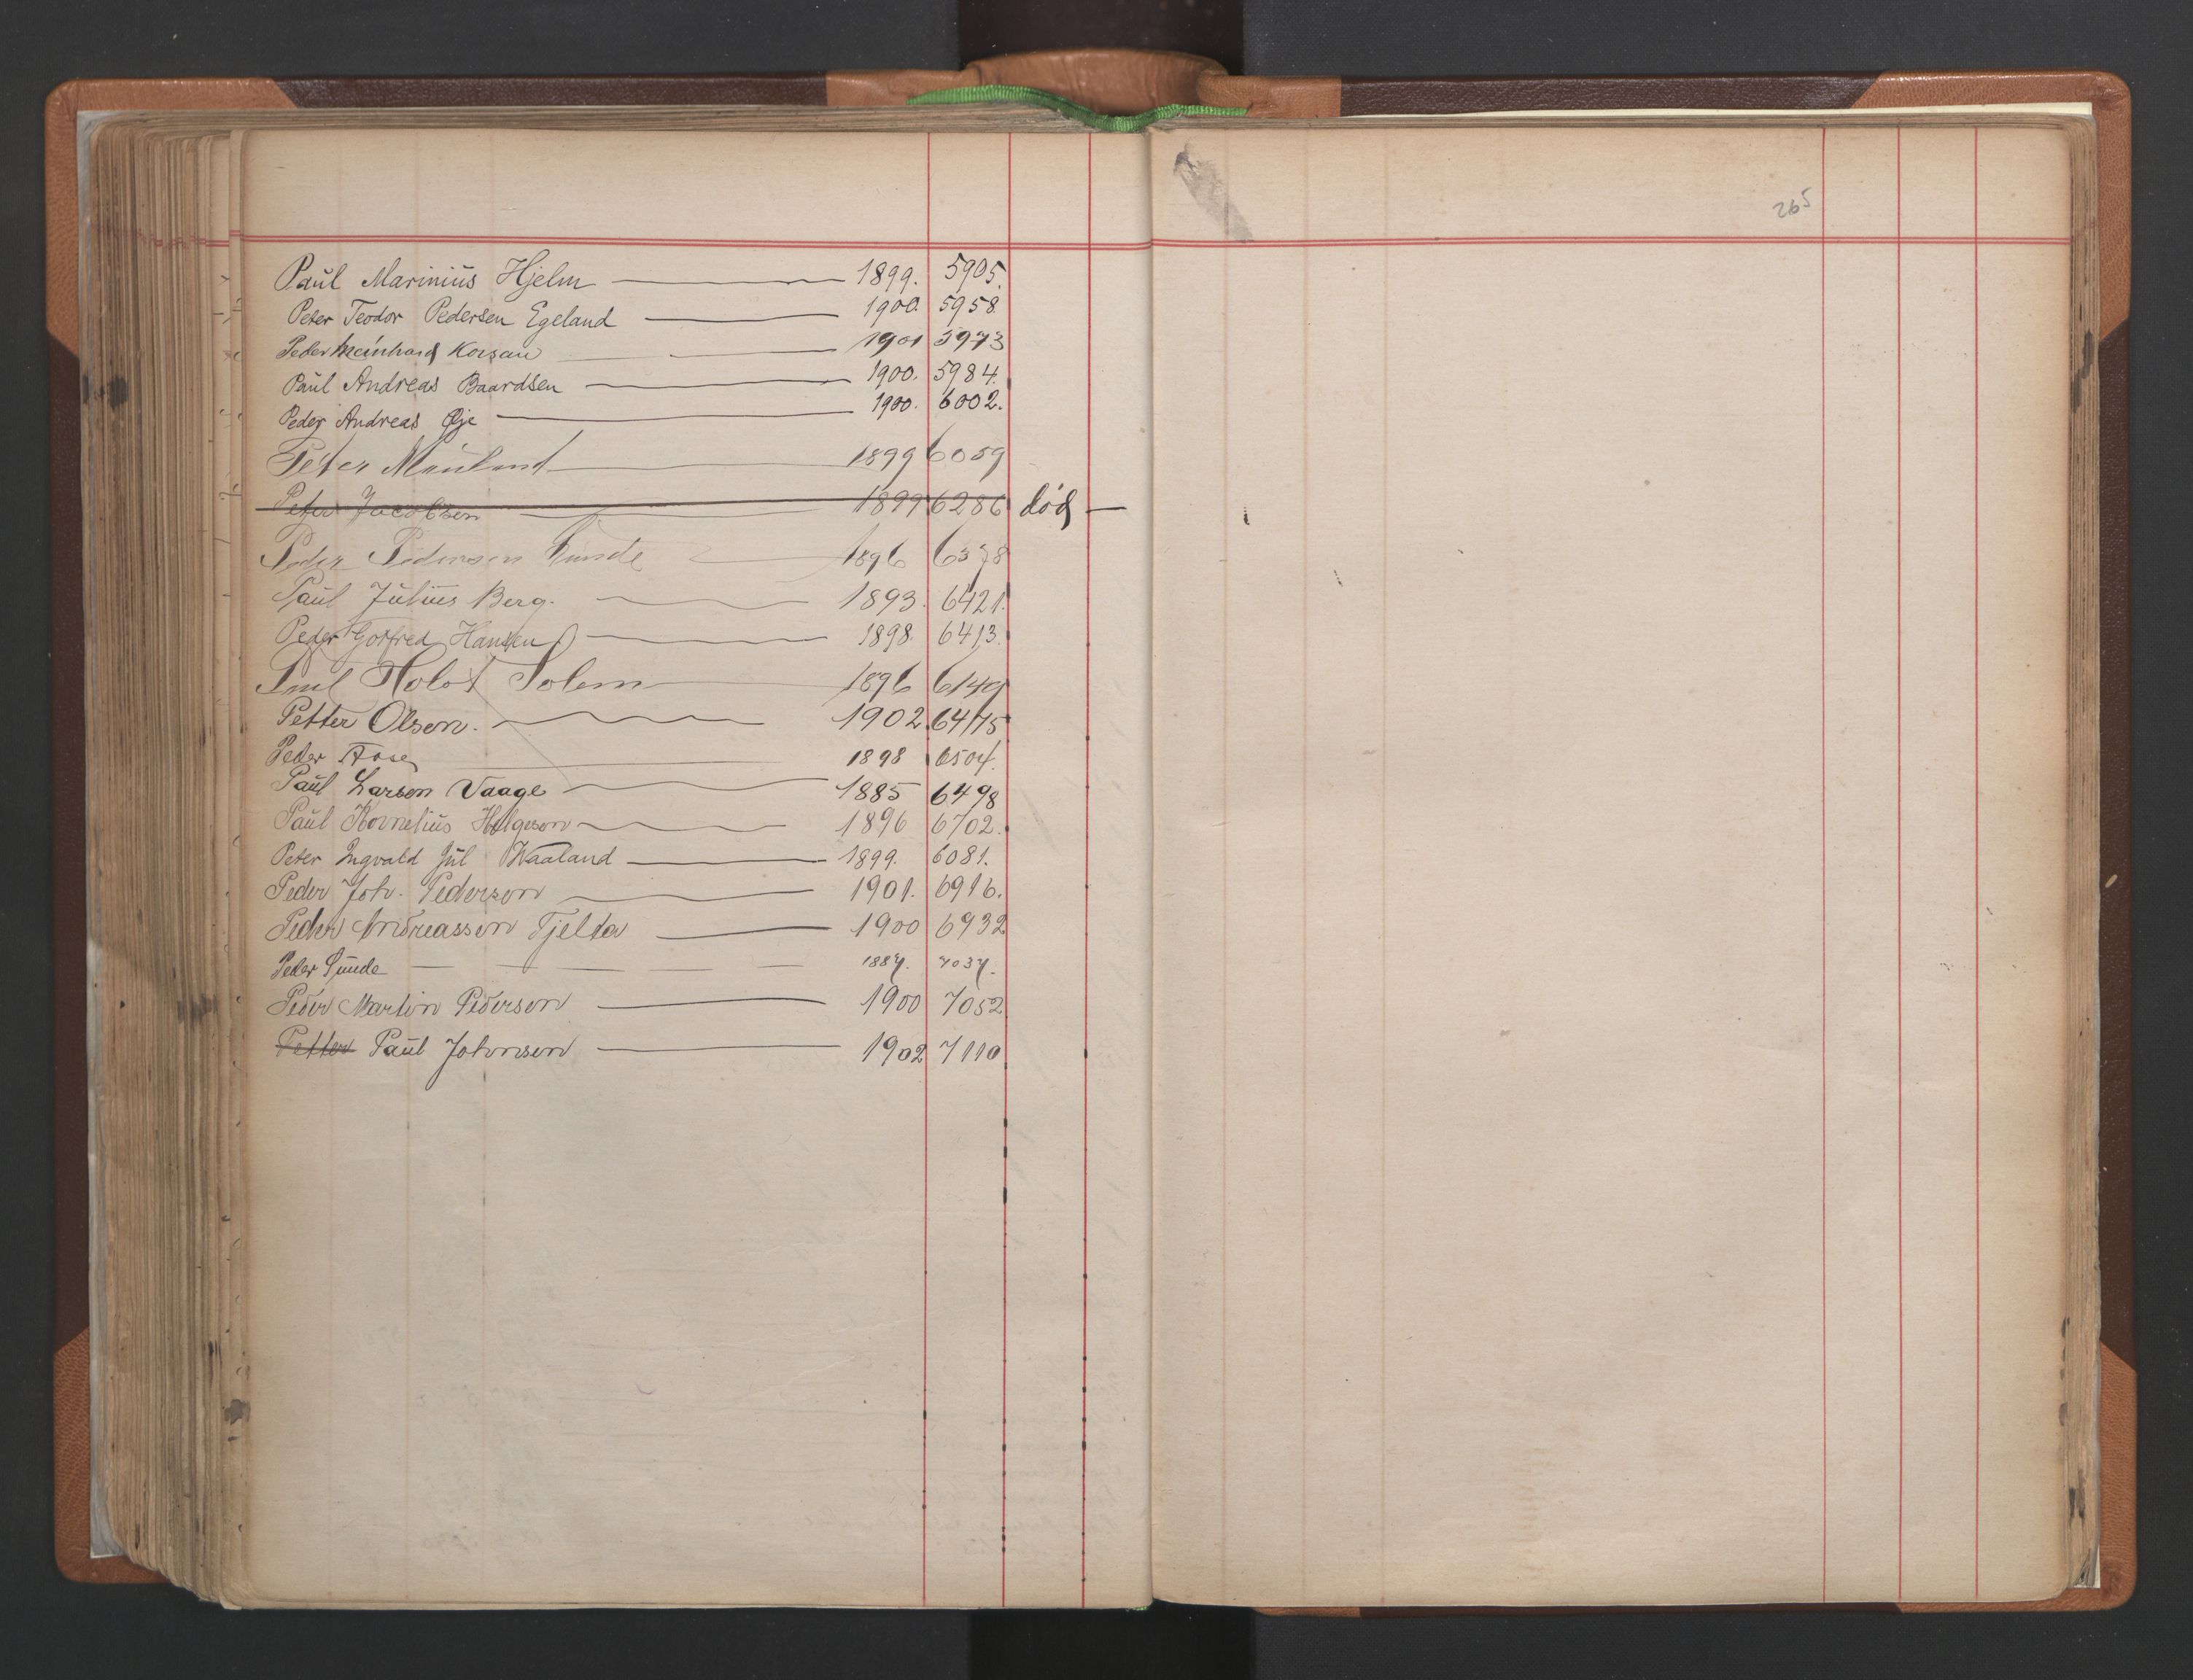 Paul Marinius Hjelm 1899. 5905.
Peter Teodor Pedersen Egeland 1900. 5958
Peder Meinhard Korsau 1901 5973
Paul Andreas Baardsen 1900. 5984.
Peder Andreas Øje 1900. 6002.
Peter Mauland 1899 6059
Peter Jacobsen 1899 6286 død —
Peder Pedersen 1896
Paul Julius Berg. 1893. 6421.
Peder Gotfred Hansen 1898. 6413.
Holst Solem 1896 6149
Petter Olsen. 1902 6475
Peder Aase 1898 6504.
Paul Larsen Vaage 1885 6498
Paul Kornelius Helgesen 1896 6702.
Peter Ingvald Jul Waaland 1899. 6081.
Peder Joh. Pedersen 1901. 6916.
Peder Andreassen Tjelta 1900 6932
Peder Sunde 1887. 7037.
Peder Martin Pedersen 1900 7052
Petter Paul Johnsen 1902 7110
265